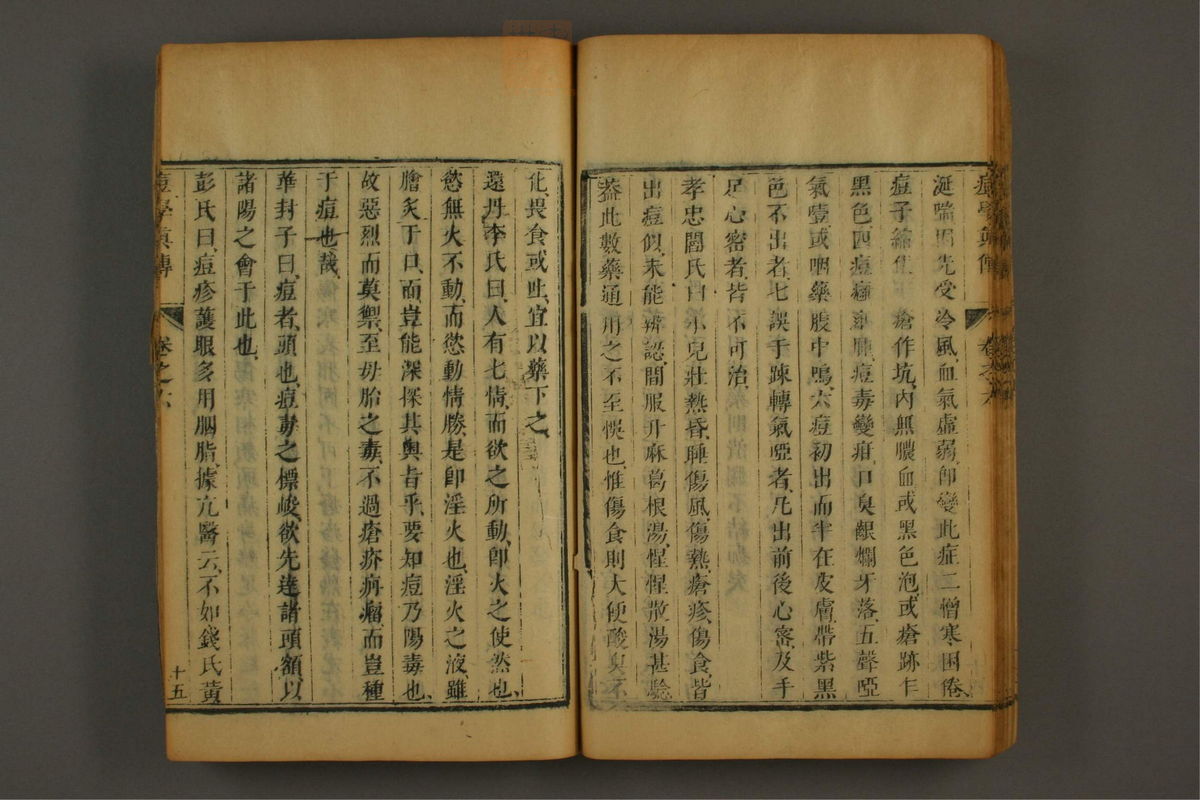 痘學眞傳 卷之六
涎喘因先受冷風血氣虛弱卽變此症二憎寒困倦
痘子 瘡作坑內無膿血或黑色泡或瘡跡乍
黑色四痘 痘毒變疳口臭齦爛牙落五聲啞
氣噎或咽藥腹中鳴六痘初出而半在皮膚帶紫黑
色不出者七誤于踈轉氣啞者凡出前後心密及手
足心密者皆不可治
孝忠閻氏曰小兒壯熱昏睡傷風傷熱瘡疹傷食皆
出痘似未能辨認間服升麻葛根湯惺惺散湯甚驗
葢此數藥通用之不至悞也惟傷食則大便酸臭不
化畏食或吐宜以藥下之
還丹李氏曰人有七情而欲之所動卽火之使然也
慾無火不動而慾動情勝是卽淫火也淫火之液雖
膾炙于口而豈能深探其奧旨乎要知痘乃陽毒也
故惡烈而莫禦至母胎之毒不過瘡疥疬瘤而豈種
于痘也哉
華封子曰痘者頭也痘毒之標峻欲先達諸頭額以
諸陽之會于此也
彭氏曰痘疹護眼多用胭脂據亢醫云不如錢氏黃
痘學眞傳 卷之六 十五